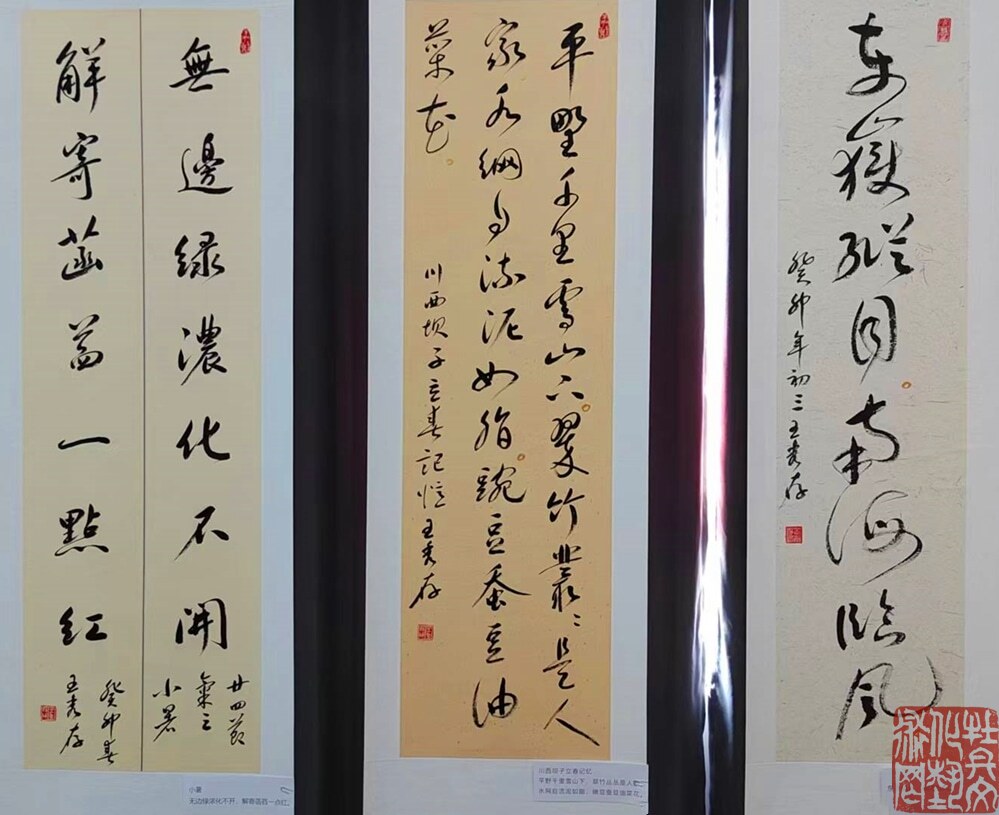 無邊緑濃化不開
廿四节
氣之
小暑
解寄菡萏一點紅
癸卯春
王秀存
小暑
无边绿浓化不开，解寄菡萏一点红。
平野千里雪山下翠竹叢〻是人
家水網自流泥如脂豌豆蚕豆油
菜花
川西坝子立春記憶王秀存
川西坝子立春记忆
平野千里雪山下，翠竹丛丛是人家
水网自流泥如脂，豌豆蚕豆油菜花。
東嶽縱目南海臨風
癸卯年初三王秀存